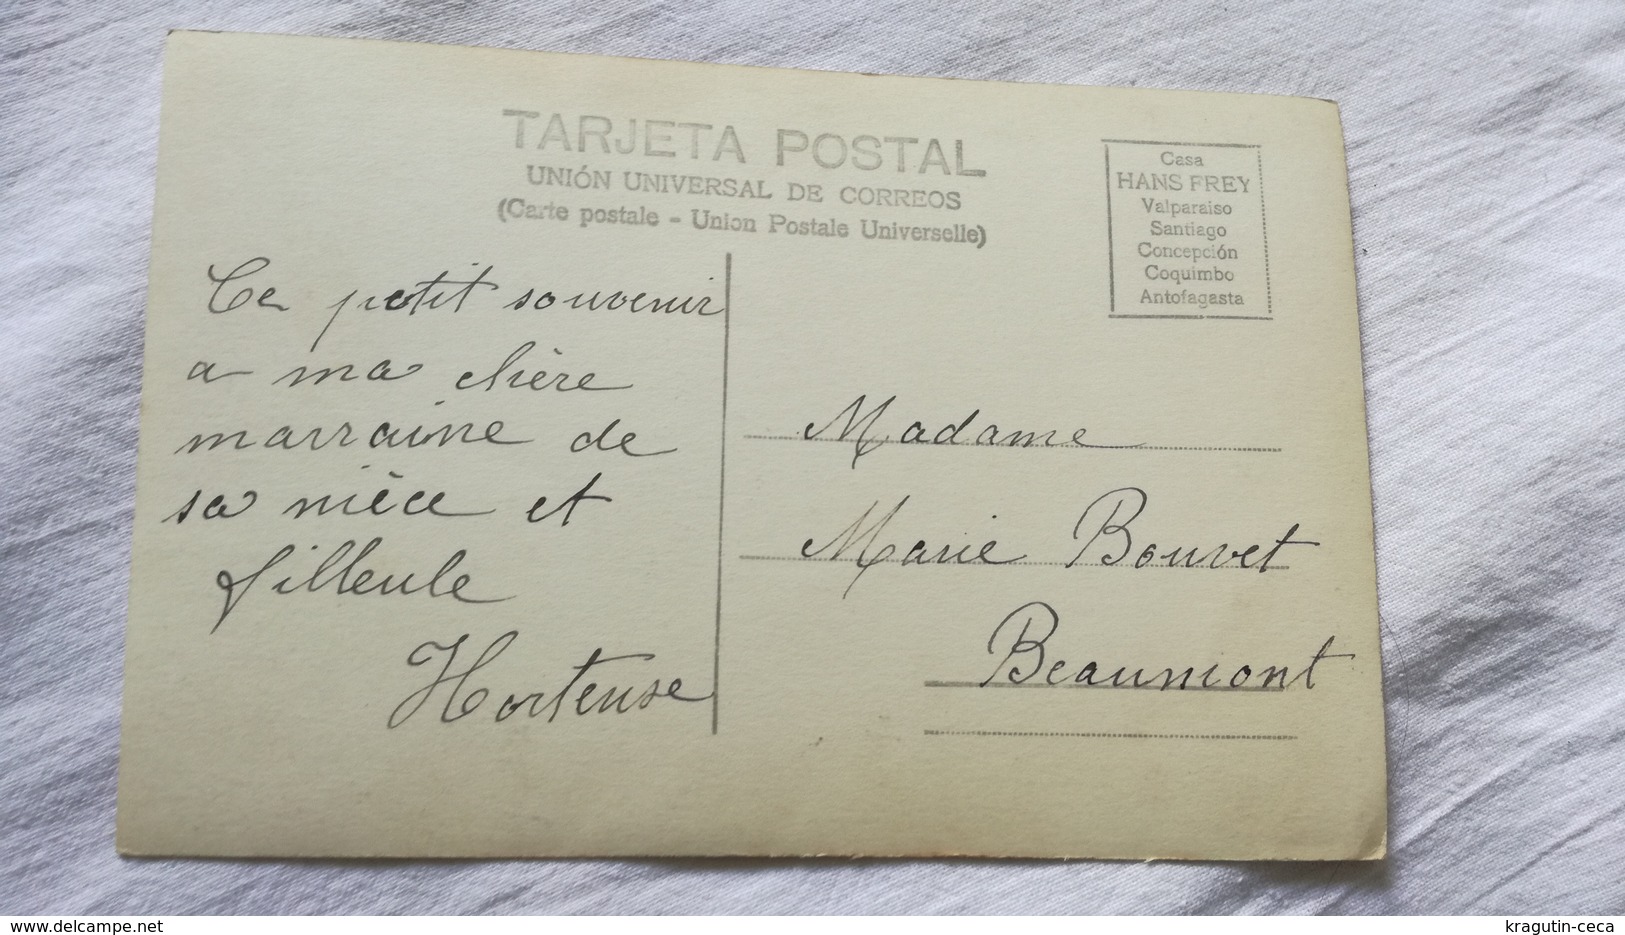 TARJETA POSTAL
UNIÓN UNIVERSAL DE CORREOS
(Carte postale - Union Postale Universelle)
Casa
HANS FREY
Valparaiso
Santiago
Concepción
Coquimbo
Antofagasta
Ce petit souvenir
a ma chère
marraine de
sa nièce et
filleule
Hortense
Madame
Marie Bouvet
Beaumont
delcampe.net
kragutin-ceca